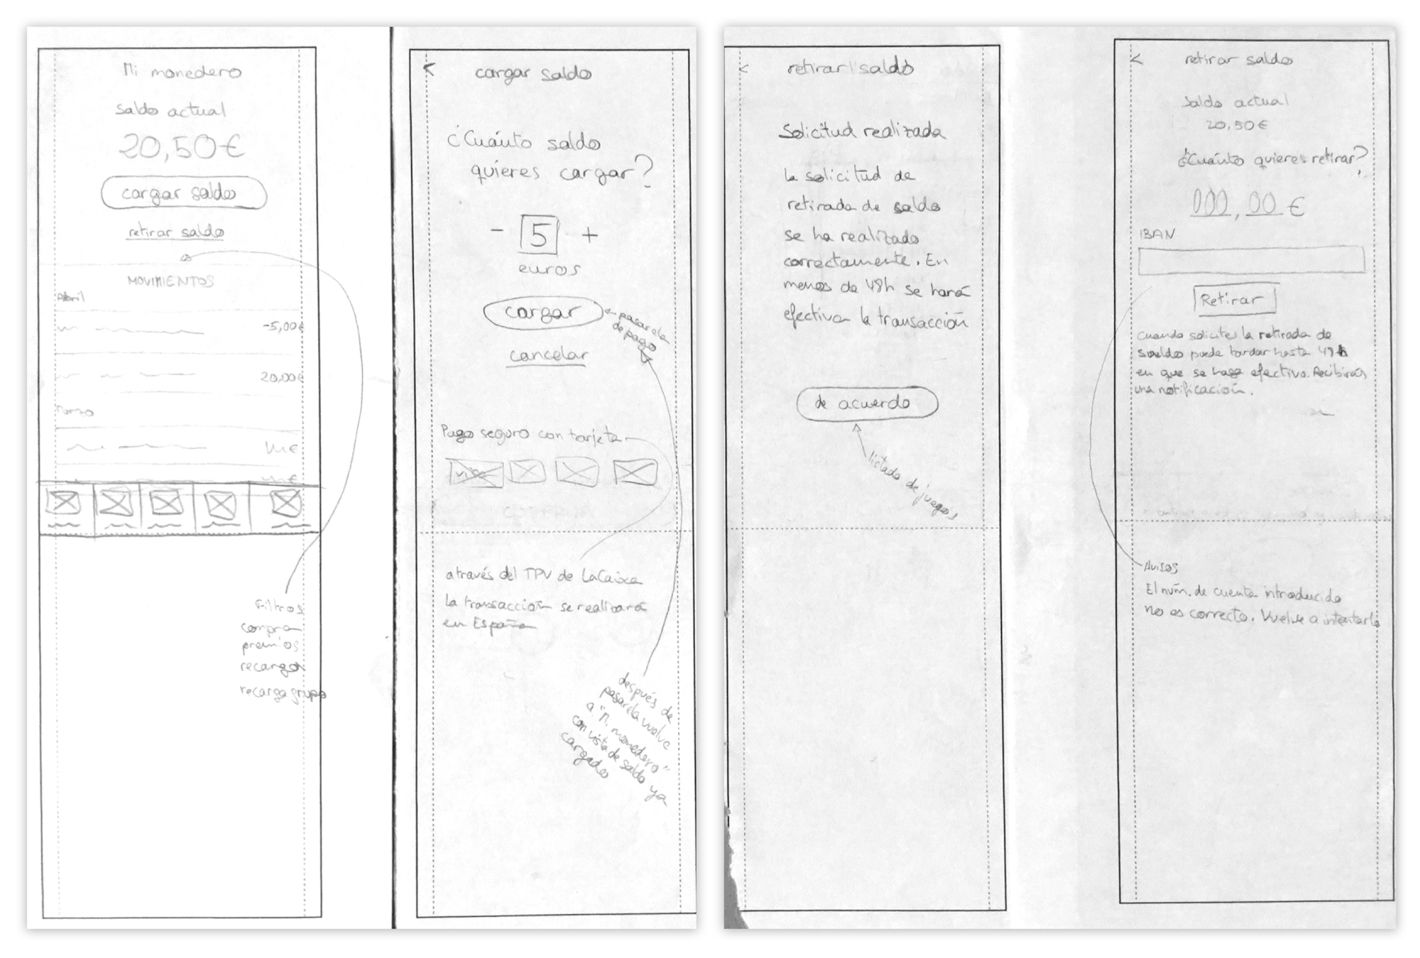 Mi monedero
saldo actual
20,50€
cargar saldo
retirar saldo
MOVIMIENTOS
Abril
-5,00€
20,00€
Filtros
compra
premios
recargar
recarga grupo
<
cargar saldo
¿Cuánto saldo
quieres cargar?
- 5 +
euros
cargar
en pasarela
de pago
cancelar
Pago seguro con tarjeta
VISA
através del TPV de LaCaixa
la transacción se realizará
en España
después de
pasarela vuelve
a "Mi monedero"
con vista de saldo ya
cargado
<
retirar saldo
Solicitud realizada
La solicitud de
retirada de saldo
se ha realizado
correctamente. En
menos de 48h se hará
efectiva la transacción
de acuerdo
listado de juegos
<
retirar saldo
Saldo actual
20,50€
¿Cuánto quieres retirar?
000,00€
IBAN
Retirar
Cuando solicites la retirada de
saldo puede tardar hasta 48h
en que se haga efectivo. Recibirás
una notificación.
Avisos
El núm. de cuenta introducido
no es correcto. Vuelve a intentarlo